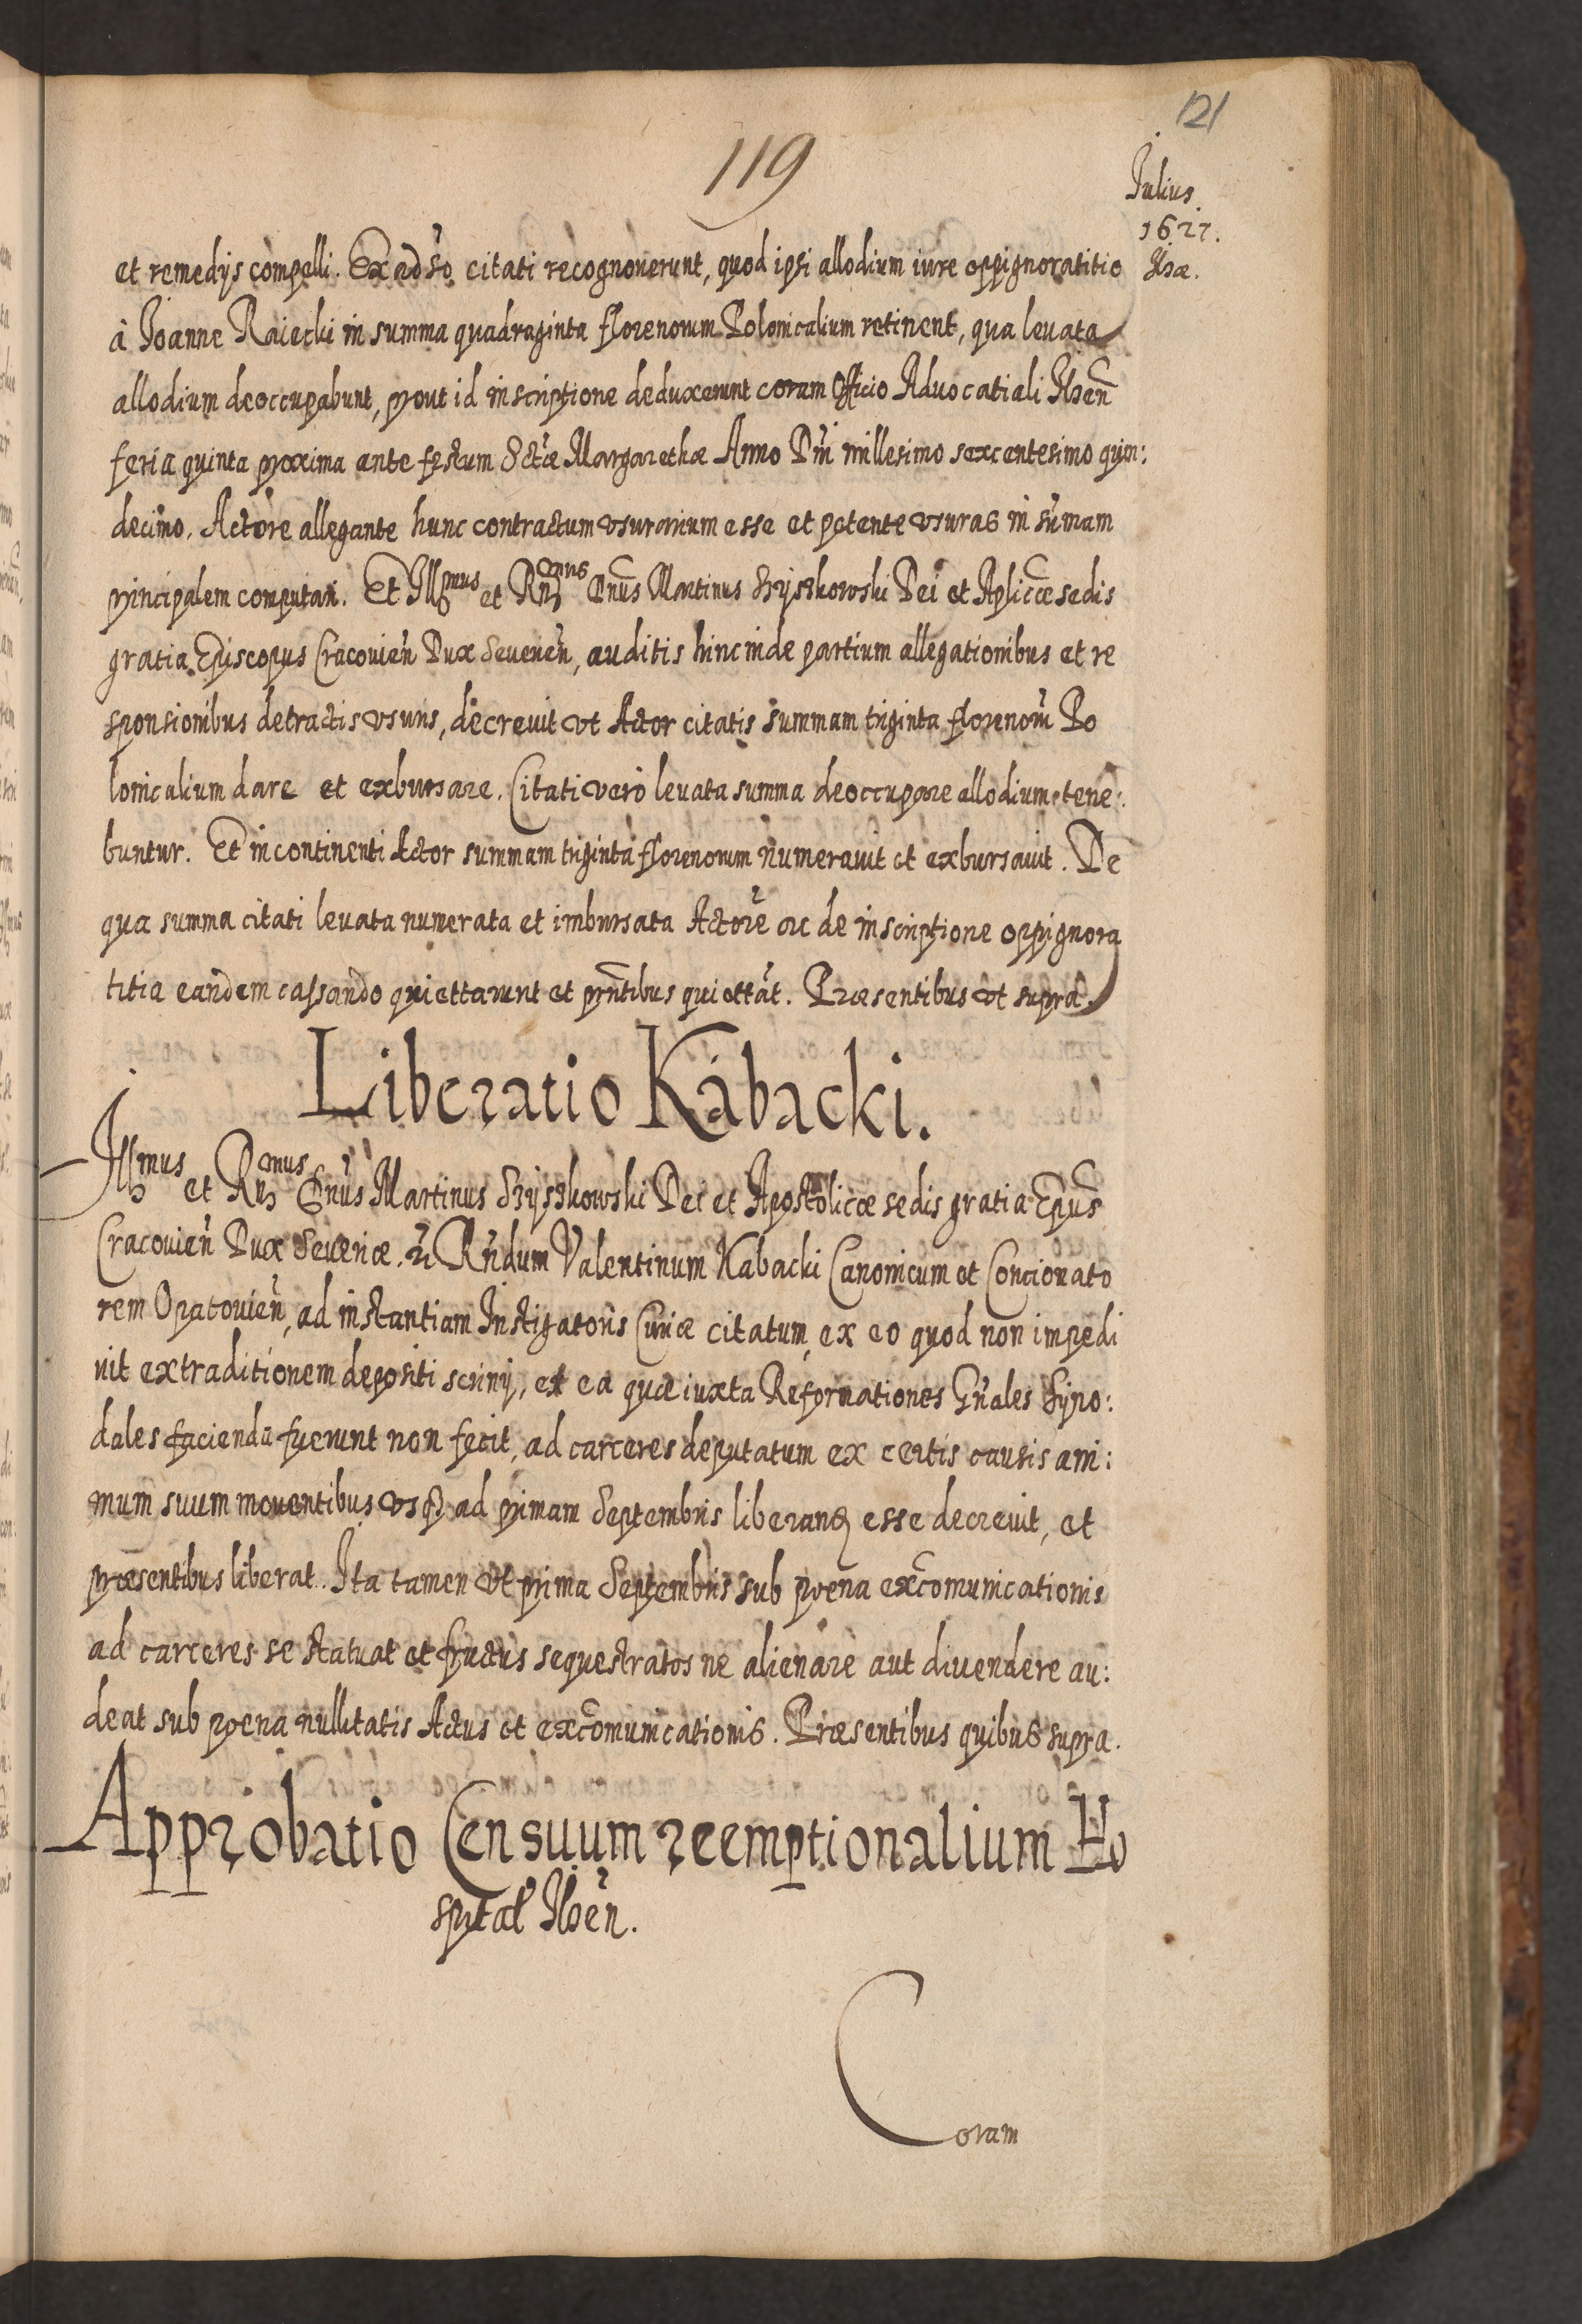 121
119
Julius
1627.
Ilzæ.
et remedijs compelli. Ex adso citati recognouerunt, quod ipsi allodium iure oppignoratitio
à Joanne Raiecki in summa quadraginta florenorum Polonicalium retinent, qua leuata
allodium deoccupabunt, prout id inscriptione deduxerunt coram Officio Aduocatiali Ilzen̄
feria quinta proxima ante festum Sctæ Margarethæ Anno Dni millesimo sexcentesimo quin:
decimo. Actore allegante hunc contractum vsurarium esse et petente vsuras in sum̄am
principalem computari. Et Illmus et Rndmus Dnus Martinus Szyszkowski Dei et Aplicæ sedis
gratia Episcopus Cracouien̄ Dux Seueren̄, auditis hinc inde partium allegationibus et re
sponsionibus detractis vsuris, decreuit vt Actor citatis summam triginta florenorū Po
lonicalium dare et exbursare. Citati verò leuata summa deoccupare allodium tene:
buntur. Et in continenti Actor summam triginta florenorum numerauit et exbursauit. De
qua summa citati leuata numerata et imbursata Actorē ac de inscriptione oppignora
titia eandem cassando quiettarunt et pn̄tibus quiettāt. Præsentibus vt supra.
Liberatio Kabacki.
Illmus et Rndmus Dnūs Martinus Szyszkowski Dei et Apostolicæ sedis gratia Epūs
Cracouien̄ Dux Seueriæ. Rn̄dum Valentinum Kabacki Canonicum et Concionato
rem Opatouien̄, ad instantiam Instigatoris Curiæ citatum, ex eo quod non impedi
uit extraditionem depositi scrinij, et ea quæ iuxta Reformationes Gn̄ales Syno:
dales facienda fuerunt non fecit, ad carceres deputatum ex certis causis ani:
mum suum mouentibus vsq3 ad primam Septembris liberand esse decreuit, et
præsentibus liberat. Ita tamen vt prima Septembris sub poena excōmunicationis
ad carceres se statuat et fructus sequestratos ne alienare aut diuendere au:
deat sub poena nullitatis Actus et excōmunicationis. Præsentibus quibus supra.
Approbatio Censuum reemptionalium Ho
spital Ilzēn.
Coram